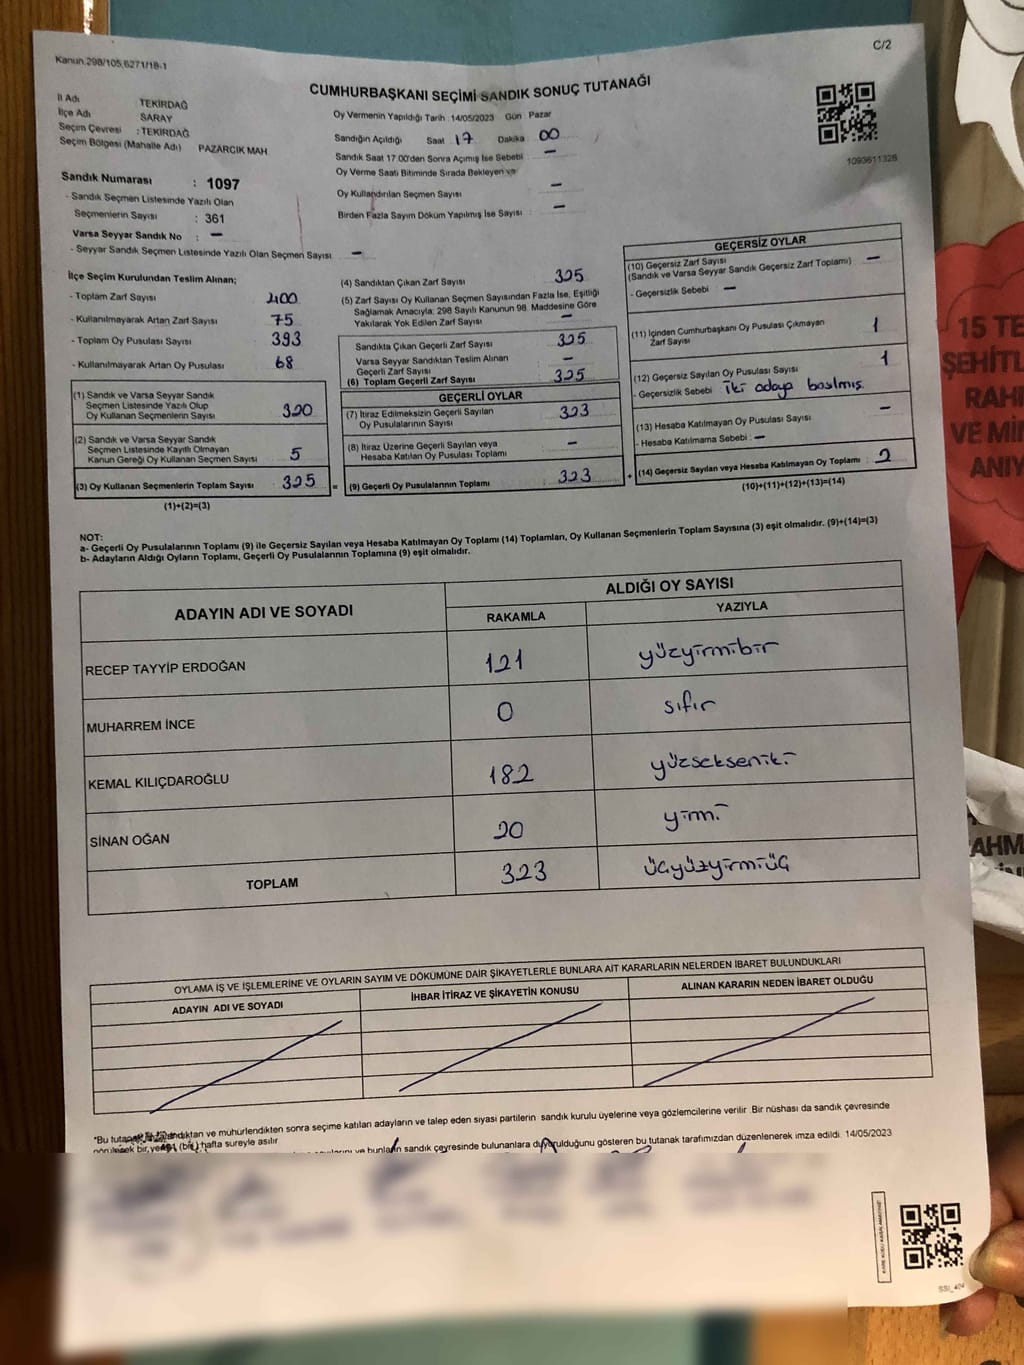 Kanun,298/105,6271/18-1
C/2
CUMHURBAŞKANI SEÇİMİ SANDIK SONUÇ TUTANAĞI
İl Adı TEKİRDAĞ
İlçe Adı SARAY
Seçim Çevresi : TEKİRDAĞ
Seçim Bölgesi (Mahalle Adı) PAZARCIK MAH
Sandık Numarası : 1097
- Sandık Seçmen Listesinde Yazılı Olan
Seçmenlerin Sayısı : 361
Varsa Seyyar Sandık No : -
- Seyyar Sandık Seçmen Listesinde Yazılı Olan Seçmen Sayısı -
Oy Vermenin Yapıldığı Tarih : 14/05/2023 Gün Pazar
Sandığın Açıldığı Saat 17 Dakika 00
Sandık Saat 17.00'den Sonra Açımış İse Sebebi -
Oy Verme Saati Bitiminde Sırada Bekleyen ve
Oy Kullandırılan Seçmen Sayısı -
Birden Fazla Sayım Döküm Yapılmış İse Sayısı : -
1093611328
İlçe Seçim Kurulundan Teslim Alınan;
- Toplam Zarf Sayısı 400
- Kullanılmayarak Artan Zarf Sayısı 75
- Toplam Oy Pusulası Sayısı 393
- Kullanılmayarak Artan Oy Pusulası 68
(1) Sandık ve Varsa Seyyar Sandık
Seçmen Listesinde Yazılı Olup
Oy Kullanan Seçmenlerin Sayısı 320
(2) Sandık ve Varsa Seyyar Sandık
Seçmen Listesinde Kayıtlı Olmayan
Kanun Gereği Oy Kullanan Seçmen Sayısı 5
(3) Oy Kullanan Seçmenlerin Toplam Sayısı 325 =
(1)+(2)=(3)
(4) Sandıktan Çıkan Zarf Sayısı 325
(5) Zarf Sayısı Oy Kullanan Seçmen Sayısından Fazla İse, Eşitliği
Sağlamak Amacıyla; 298 Sayılı Kanunun 98. Maddesine Göre
Yakılarak Yok Edilen Zarf Sayısı -
Sandıkta Çıkan Geçerli Zarf Sayısı 325
Varsa Seyyar Sandıktan Teslim Alınan
Geçerli Zarf Sayısı -
(6) Toplam Geçerli Zarf Sayısı 325
GEÇERLİ OYLAR
(7) İtiraz Edilmeksizin Geçerli Sayılan
Oy Pusulalarının Sayısı 323
(8) İtiraz Üzerine Geçerli Sayılan veya
Hesaba Katılan Oy Pusulası Toplamı -
(9) Geçerli Oy Pusulalarının Toplamı 323 +
GEÇERSİZ OYLAR
(10) Geçersiz Zarf Sayısı
(Sandık ve Varsa Seyyar Sandık Geçersiz Zarf Toplamı) -
- Geçersizlik Sebebi -
(11) İçinden Cumhurbaşkanı Oy Pusulası Çıkmayan
Zarf Sayısı 1
(12) Geçersiz Sayılan Oy Pusulası Sayısı 1
- Geçersizlik Sebebi : iki adaya basılmış.
(13) Hesaba Katılmayan Oy Pusulası Sayısı -
- Hesaba Katılmama Sebebi : -
(14) Geçersiz Sayılan veya Hesaba Katılmayan Oy Toplamı : 2
(10)+(11)+(12)+(13)=(14)
NOT:
a- Geçerli Oy Pusulalarının Toplamı (9) ile Geçersiz Sayılan veya Hesaba Katılmayan Oy Toplamı (14) Toplamları, Oy Kullanan Seçmenlerin Toplam Sayısına (3) eşit olmalıdır. (9)+(14)=(3)
b- Adayların Aldığı Oyların Toplamı, Geçerli Oy Pusulalarının Toplamına (9) eşit olmalıdır.
ADAYIN ADI VE SOYADI ALDIĞI OY SAYISI
RAKAMLA YAZIYLA
RECEP TAYYİP ERDOĞAN 121 yüzyirmibir
MUHARREM İNCE 0 sıfır
KEMAL KILIÇDAROĞLU 182 yüzsekseniki
SİNAN OĞAN 20 yirmi
TOPLAM 323 üçyüzyirmiüç
OYLAMA İŞ VE İŞLEMLERİNE VE OYLARIN SAYIM VE DÖKÜMÜNE DAİR ŞİKAYETLERLE BUNLARA AİT KARARLARIN NELERDEN İBARET BULUNDUKLARI
ADAYIN ADI VE SOYADI İHBAR İTİRAZ VE ŞİKAYETİN KONUSU ALINAN KARARIN NEDEN İBARET OLDUĞU
*Bu ve mühürlendikten sonra seçime katılan adayların ve talep eden siyasi partilerin sandık kurulu üyelerine veya gözlemcilerine verilir. Bir nüshası da sandık çevresinde
görülecek bir yere (bir) hafta süreyle asılır
sandık çevresinde bulunanlara duyurulduğunu gösteren bu tutanak tarafımızdan düzenlenerek imza edildi. 14/05/2023
SSI_404
15 TE
ŞEHİTL
RAH
VE Mİ
ANI
AHM